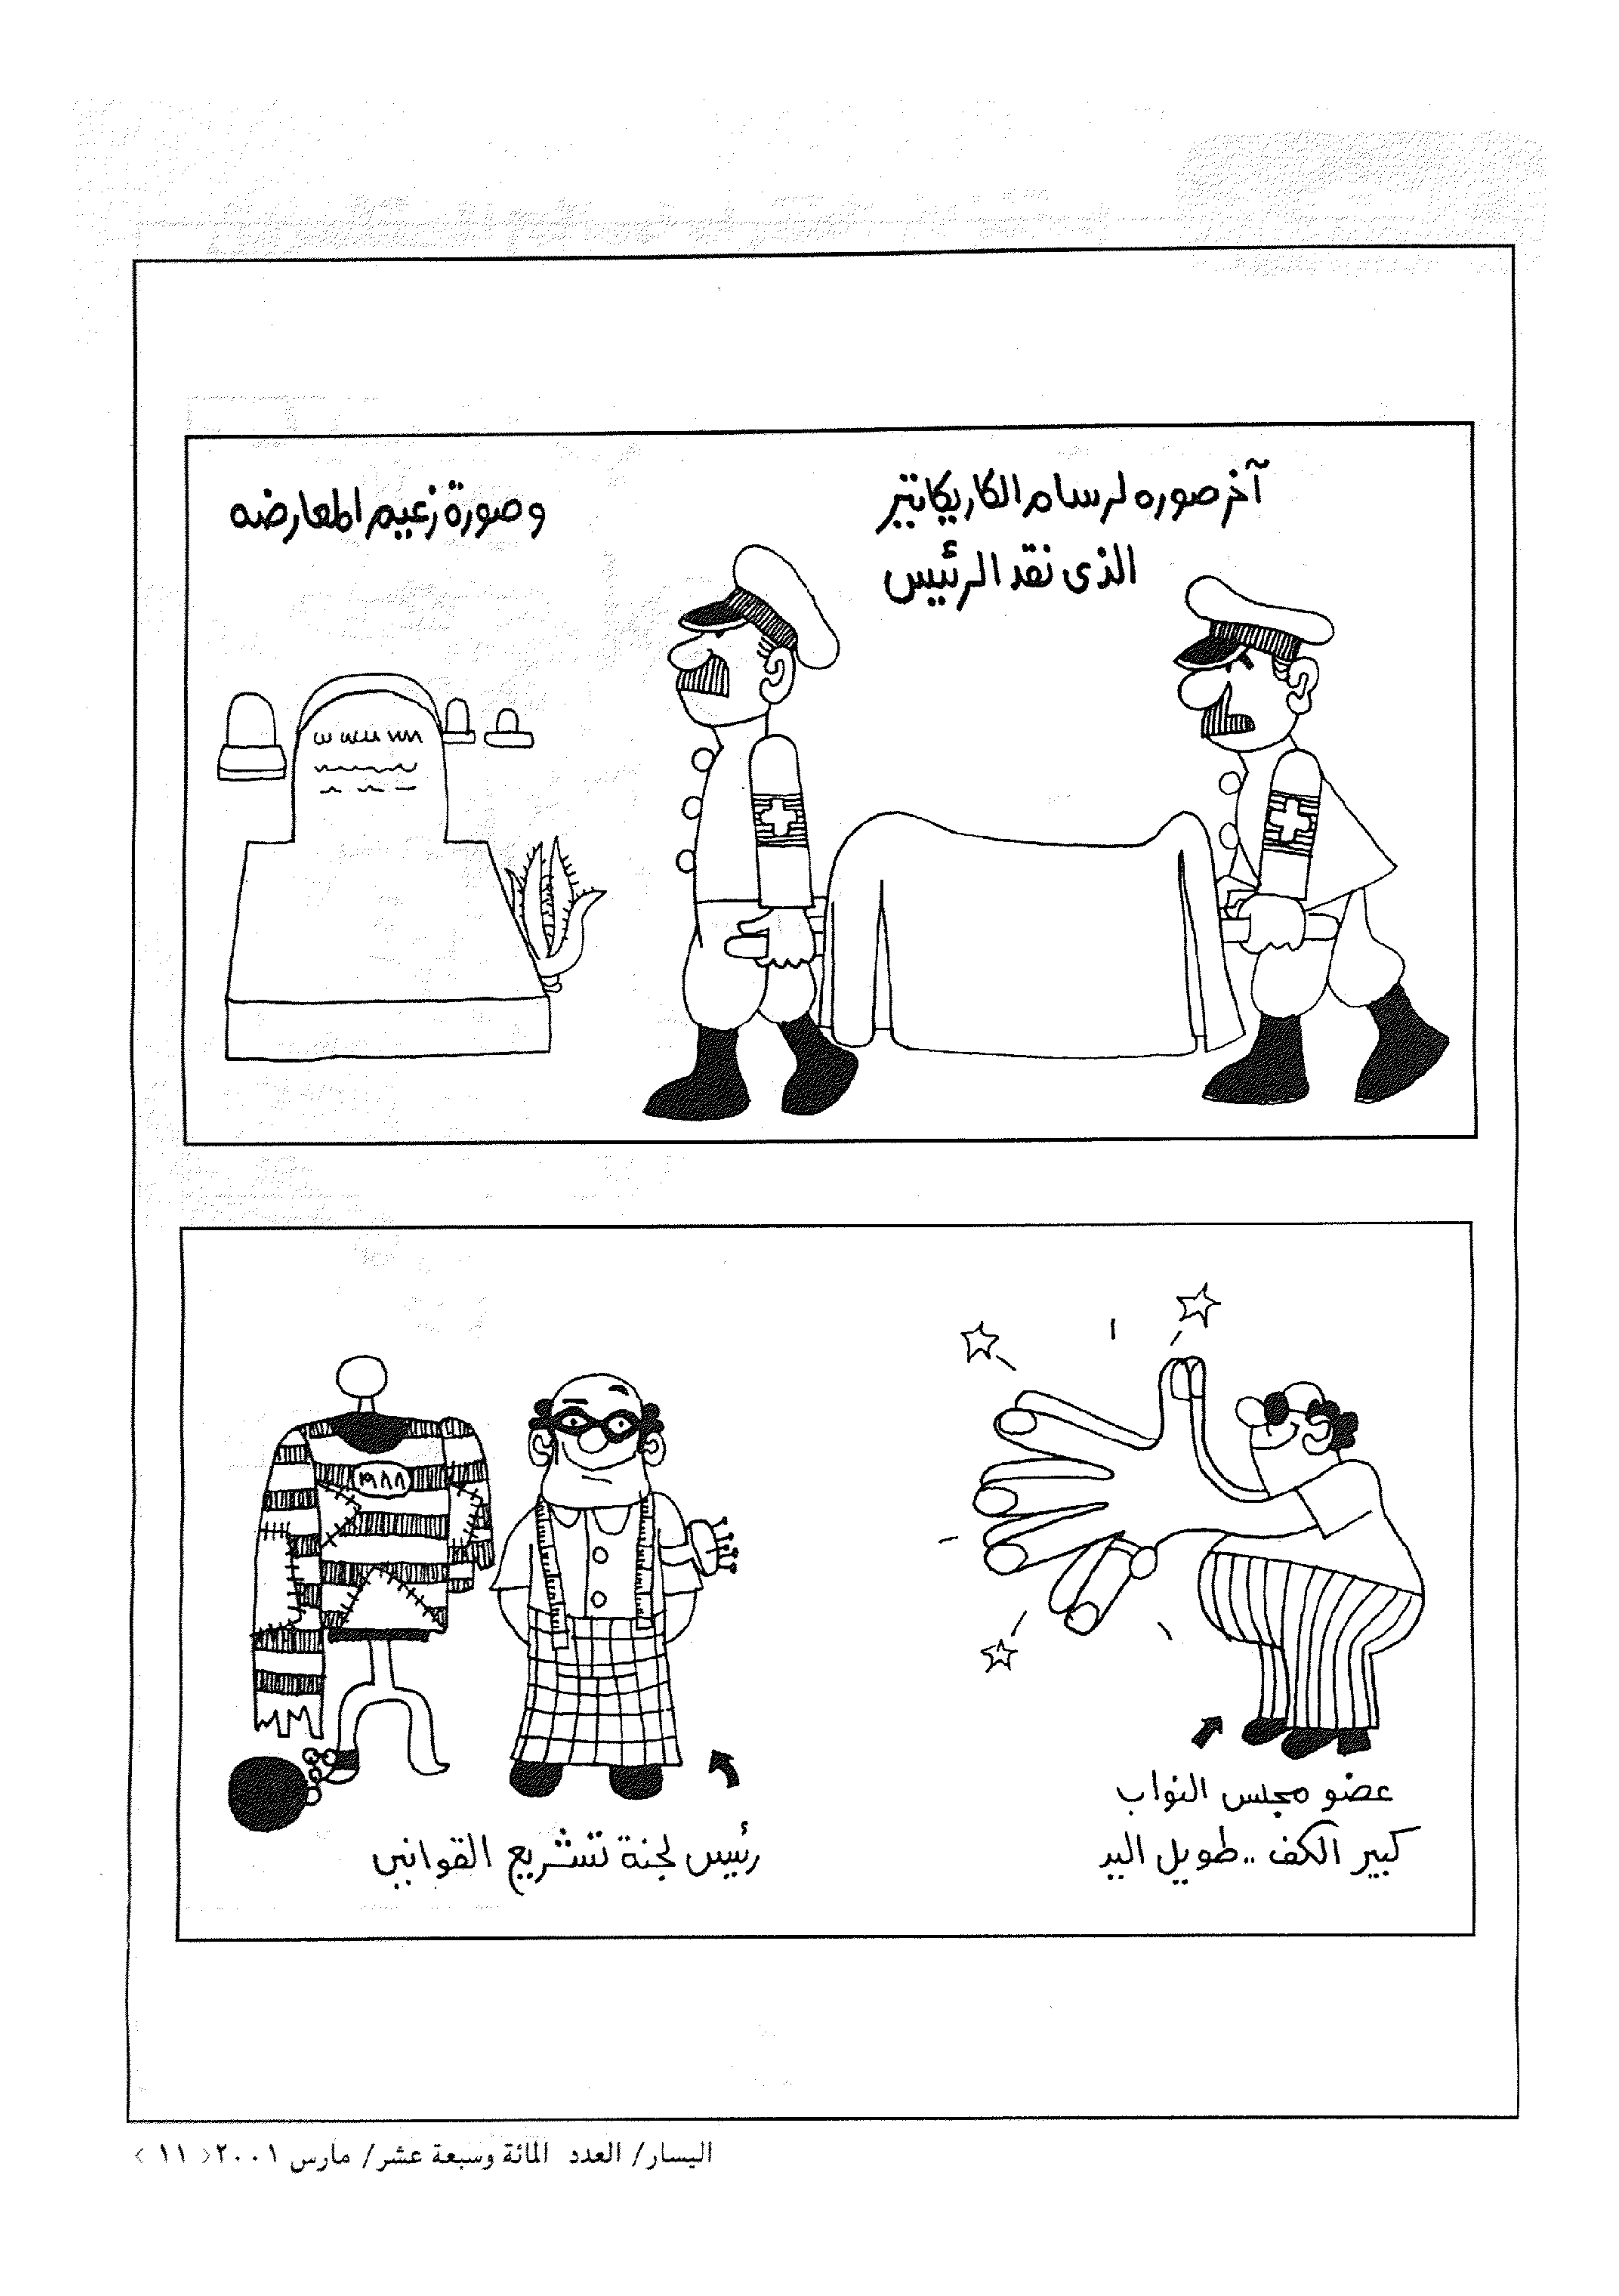 آخر صوره لرسام الكاريكاتير
الذى نقد الرئيس
وصورة زعيم المعارضه
عضو مجلس النواب
كبير الكف .. طويل اليد
١٩٨٨
رئيس لجنة تشريع القوانين
اليسار/ العدد المائة وسبعة عشر/ مارس ٢٠٠١< ١١ >